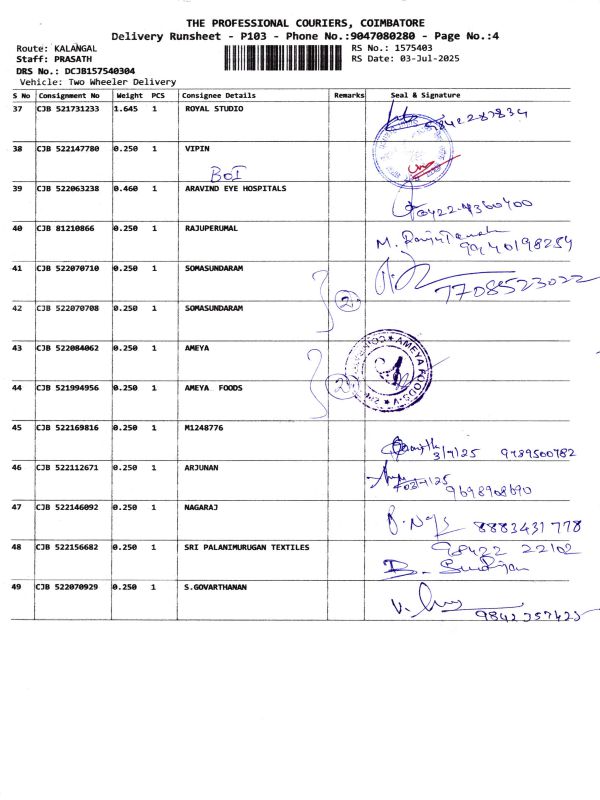 THE PROFESSIONAL COURIERS, COIMBATORE
Delivery Runsheet - P103 - Phone No.:9047080280 - Page No.:4
Route: KALANGAL RS No.: 1575403
Staff: PRASATH RS Date: 03-Jul-2025
DRS No.: DCJB157540304
Vehicle: Two Wheeler Delivery
S No Consignment No Weight PCS Consignee Details Remarks Seal & Signature
37 CJB 521731233 1.645 1 ROYAL STUDIO
9842287834
38 CJB 522147780 0.250 1 VIPIN
BOI
39 CJB 522063238 0.460 1 ARAVIND EYE HOSPITALS
0422-4360400
40 CJB 81210866 0.250 1 RAJUPERUMAL
M.
41 CJB 522070710 0.250 1 SOMASUNDARAM
7708523022
2
42 CJB 522070708 0.250 1 SOMASUNDARAM
43 CJB 522084062 0.250 1 AMEYA
AMEYA FOODS
2
44 CJB 521994956 0.250 1 AMEYA FOODS
45 CJB 522169816 0.250 1 M1248776
3/7/25 9789500782
46 CJB 522112671 0.250 1 ARJUNAN
9698908690
47 CJB 522146092 0.250 1 NAGARAJ
8883431778
48 CJB 522156682 0.250 1 SRI PALANIMURUGAN TEXTILES
98422 22102
49 CJB 522070929 0.250 1 S.GOVARTHANAN
9842357425